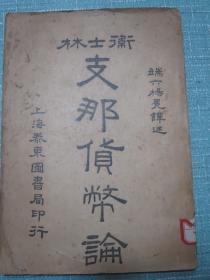 衞士林
端六楊冕譯述
支那貨幣論
上海泰東圖書局印行